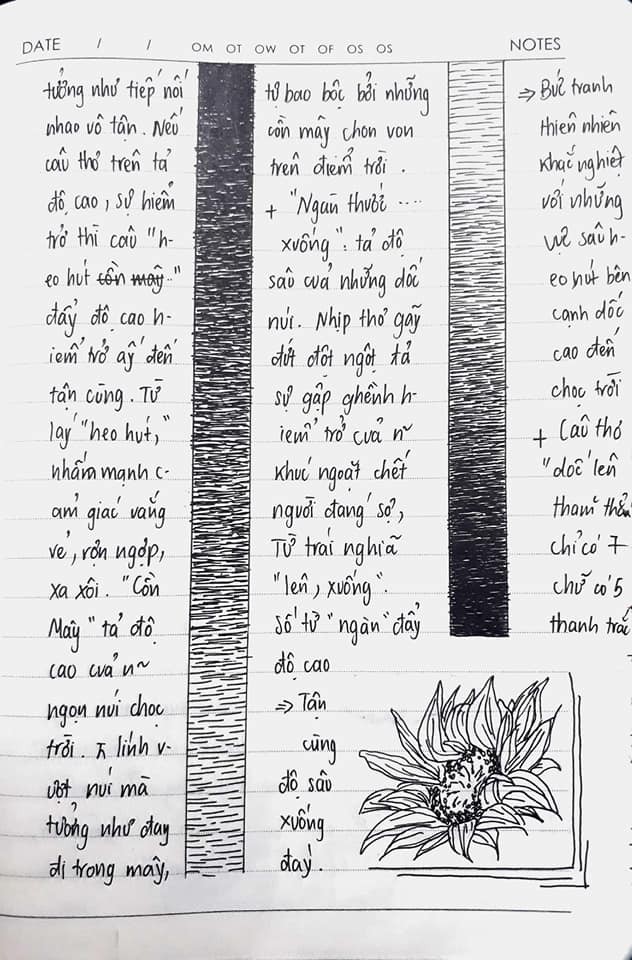 DATE / / OM OT OW OT OF OS OS NOTES
tưởng như tiếp nối
nhao vô tận. Nếu
câu thơ trên tả
độ cao, sự hiểm
trở thì câu "h-
eo hút cồn mây"
đẩy độ cao h-
iểm trở ấy đến
tận cùng. Từ
láy "heo hút,"
nhấm mạnh c-
ảm giác vắng
vẻ, rợn ngợp,
xa xôi. "Cồn
Mây" tả độ
cao của n~
ngọn núi chọc
trời. lính v-
ượt núi mà
tưởng như đay
đi trong mây,
tự bao bộc bởi những
cồn mây chon von
trên điểm trời.
+ "Ngàn thước ....
xuống": tả độ
sâu của những dốc
núi. Nhịp thơ gãy
đứt đột ngột tả
sự gập ghềnh h-
iểm trở của n~
khúc ngoặt chết
người đáng sợ,
Từ trái nghĩa
"lên, xuống".
Số từ "ngàn" đẩy
độ cao
⇒ Tận
cùng
độ sâu
xuống
đáy.
⇒ Bức tranh
thiên nhiên
khắc nghiệt
với những
vực sâu h-
eo hút bên
cạnh dốc
cao đến
chọc trời
+ Câu thơ
"dốc lên
thăm thẳm
chỉ có 7
chữ có 5
thanh trắc